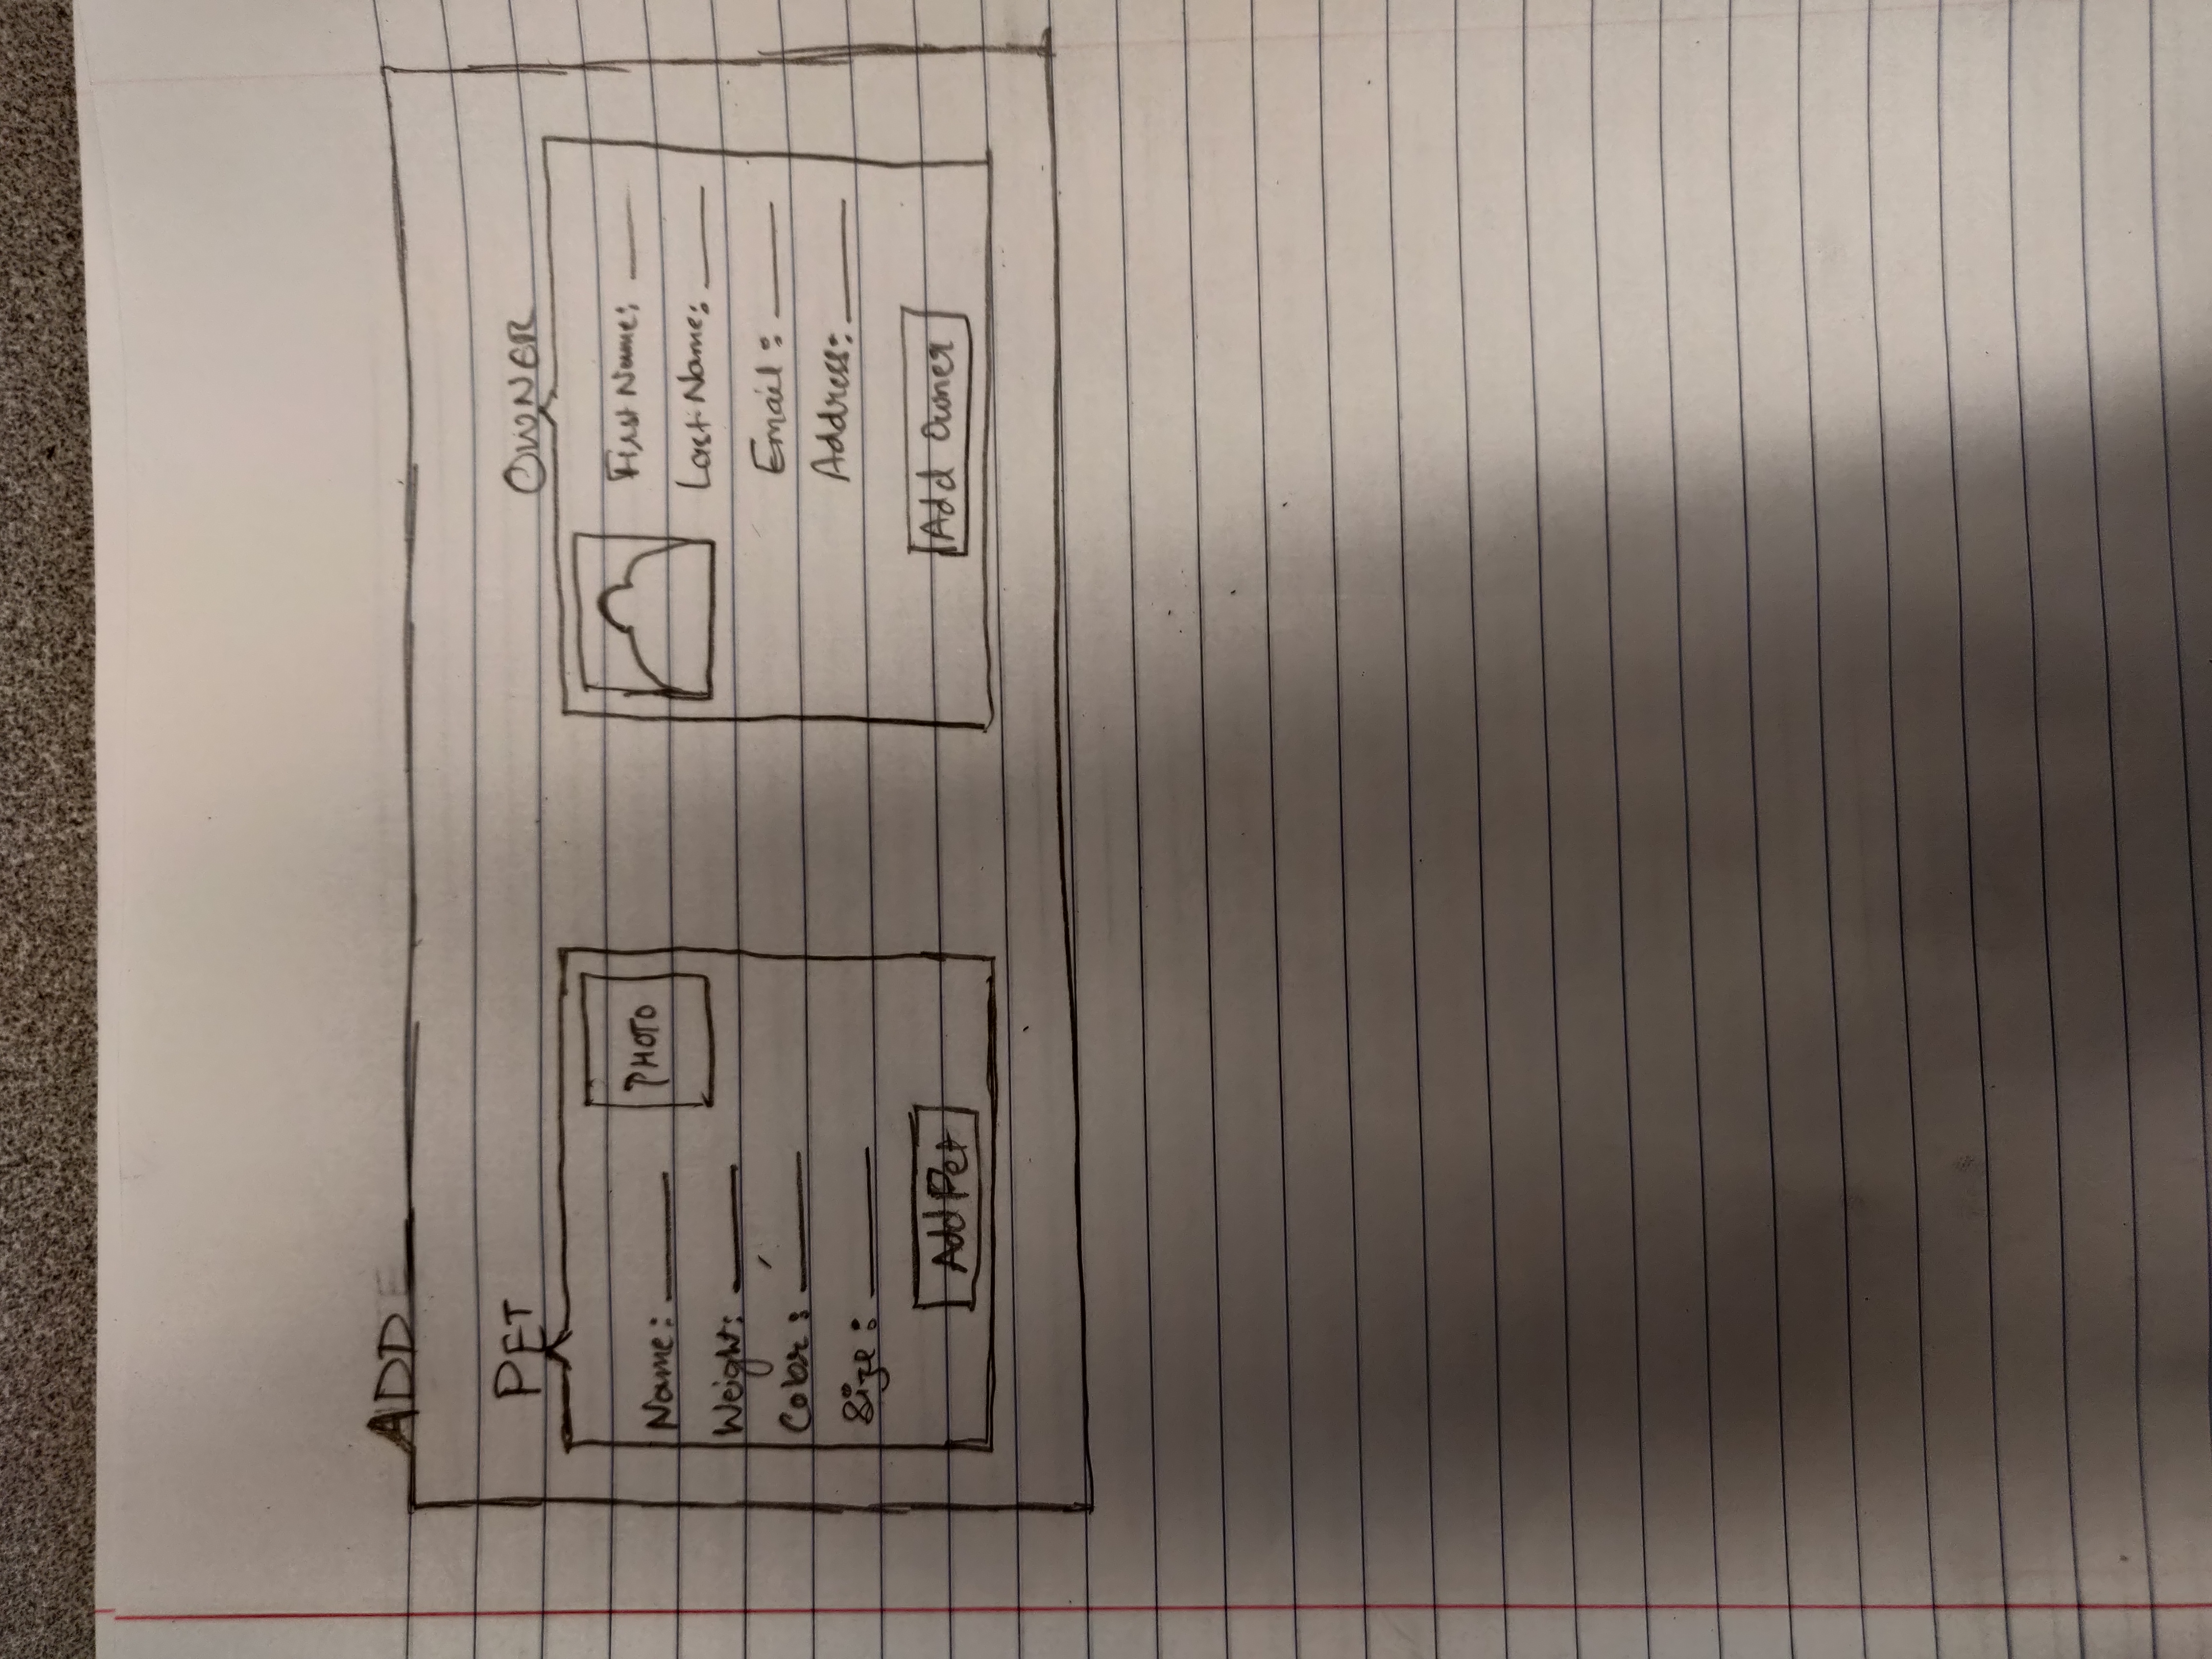 ADD
PET
Name:
PHOTO
Weight:
Color:
Size:
Add Pet
OWNER
First Name:
Last Name:
Email:
Address:
Add Owner